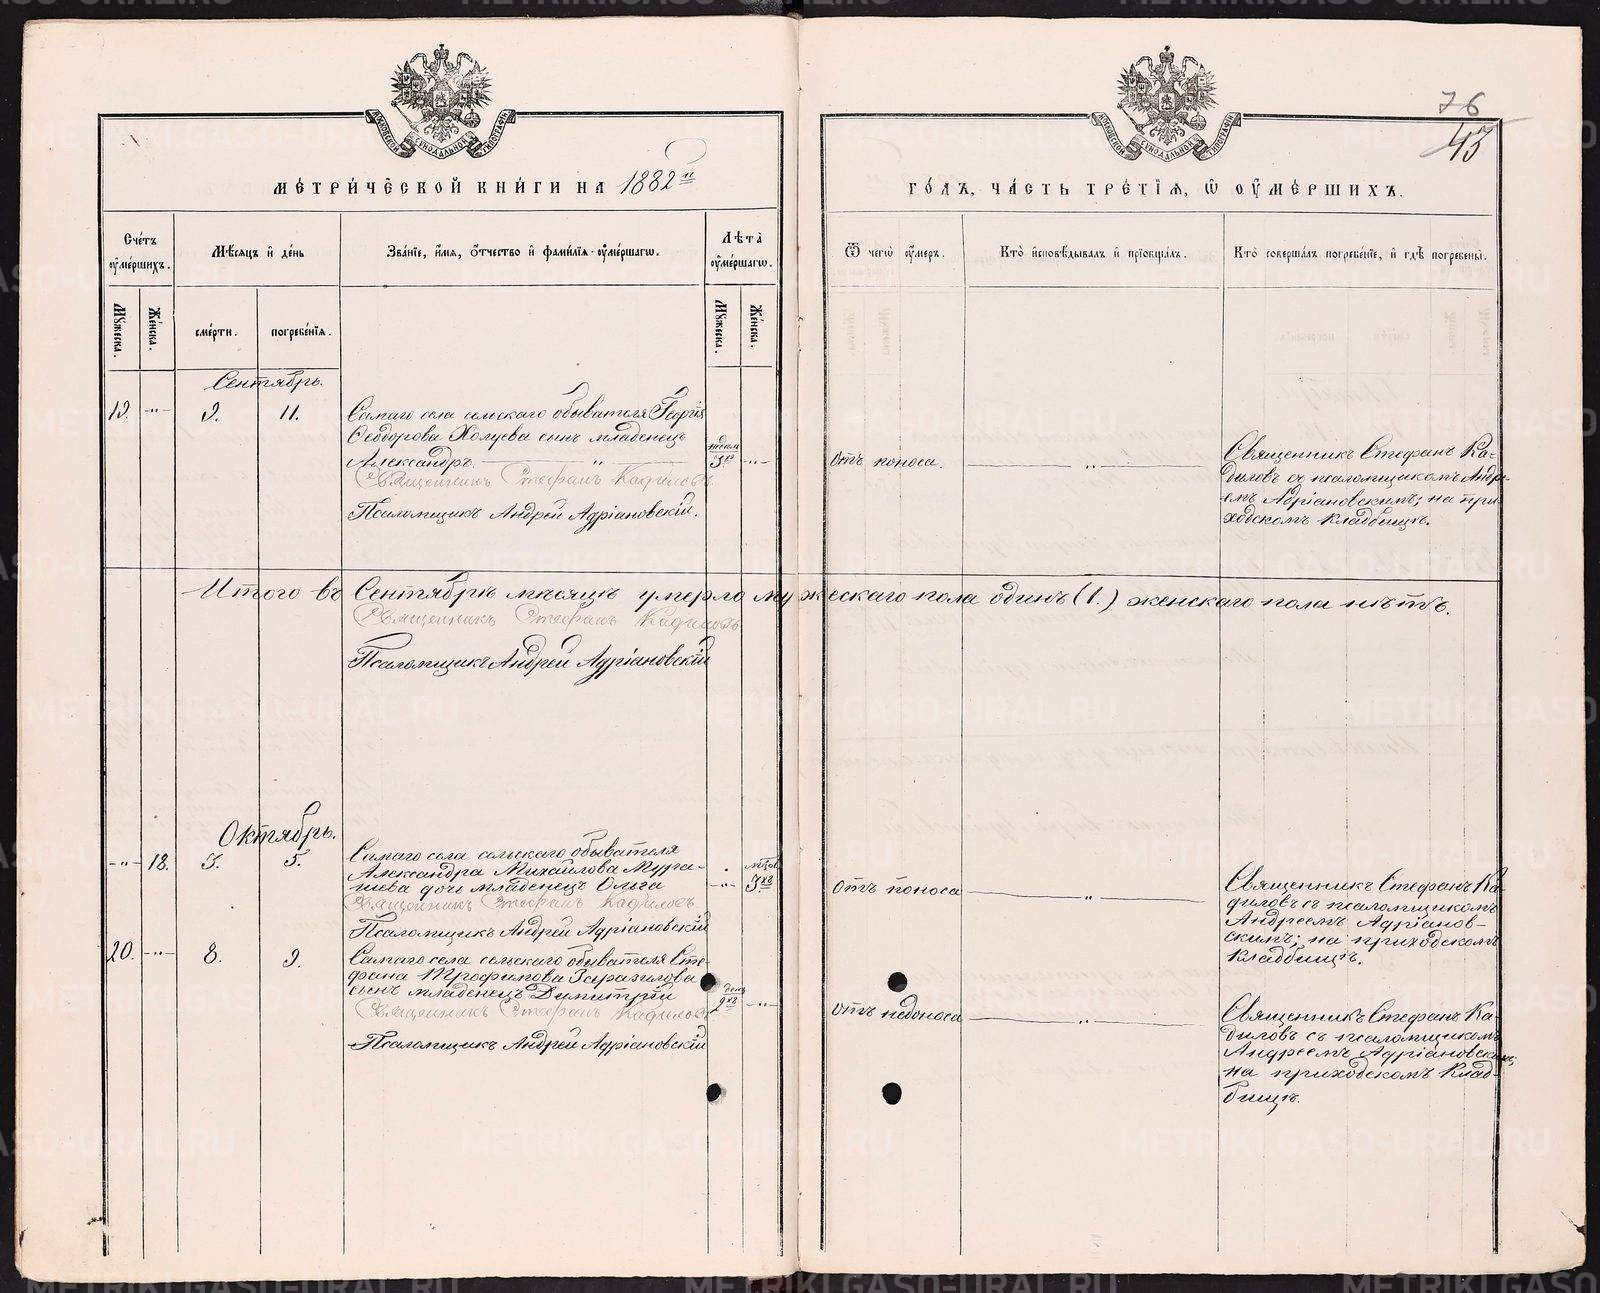 76
43
МОСКОВСКОЙ СѴНОДАЛЬНОЙ ТИПОГРАФІИ
МОСКОВСКОЙ СѴНОДАЛЬНОЙ ТИПОГРАФІИ
МЕТРИЧЕСКОЙ КНИГИ НА 1882й
ГОДЪ, ЧАСТЬ ТРЕТІЯ, Ѿ ОУМЕРШИХЪ.
Счетъ оумершихъ.
Мужеска.
Женска.
Мѣсяцъ и день
смерти.
погребенія.
Званіе, имя, отчество и фамилія оумершагѡ.
Лѣта оумершагѡ.
Мужеска.
Женска.
Ѿ чегѡ оумеръ.
Кто исповѣдывалъ и пріобщалъ.
Кто совершалъ погребеніе, и гдѣ погребены.
Сентябрь.
19. -"- 9. 11.
Самаго села сельскаго обывателя Георгія
Ѳеодорова Холуева сынъ младенецъ
Александръ. — " —
3 -"-
Священникъ Стефанъ Кадиловъ
Псаломщикъ Андрей Адріановскій.
Отъ поноса.
— " —
Священникъ Стефанъ Ка-
диловъ съ псаломщикомъ Андре-
емъ Адріановскимъ; на при-
ходскомъ кладбищѣ.
Итого въ Сентябрѣ мѣсяцѣ умерло мужескаго пола одинъ (1.) женскаго пола нѣтъ.
Священникъ Стефанъ Кадиловъ
Псаломщикъ Андрей Адріановскій
Октябрь.
-"- 18. 3. 5.
Самаго села сельскаго обывателя
Александра Михайлова Мура-
шева дочь младенецъ Ольга
-"- 3хъ
Священникъ Стефанъ Кадиловъ
Псаломщикъ Андрей Адріановскій
Отъ поноса
— " —
Священникъ Стефанъ Ка-
диловъ съ псаломщикомъ
Андреемъ Адріанов-
скимъ; на приходскомъ
кладбищѣ.
20. -"- 8. 9.
Самаго села сельскаго обывателя Сте-
фана Трофимова
сынъ младенецъ Димитрій
2хъ -"-
Священникъ Стефанъ Кадиловъ
Псаломщикъ Андрей Адріановскій
Отъ недоноса
— " —
Священникъ Стефанъ Ка-
диловъ съ псаломщикомъ
Андреемъ Адріановскимъ;
на приходскомъ клад-
бищѣ.
METRIKI.GASO-URAL.RU